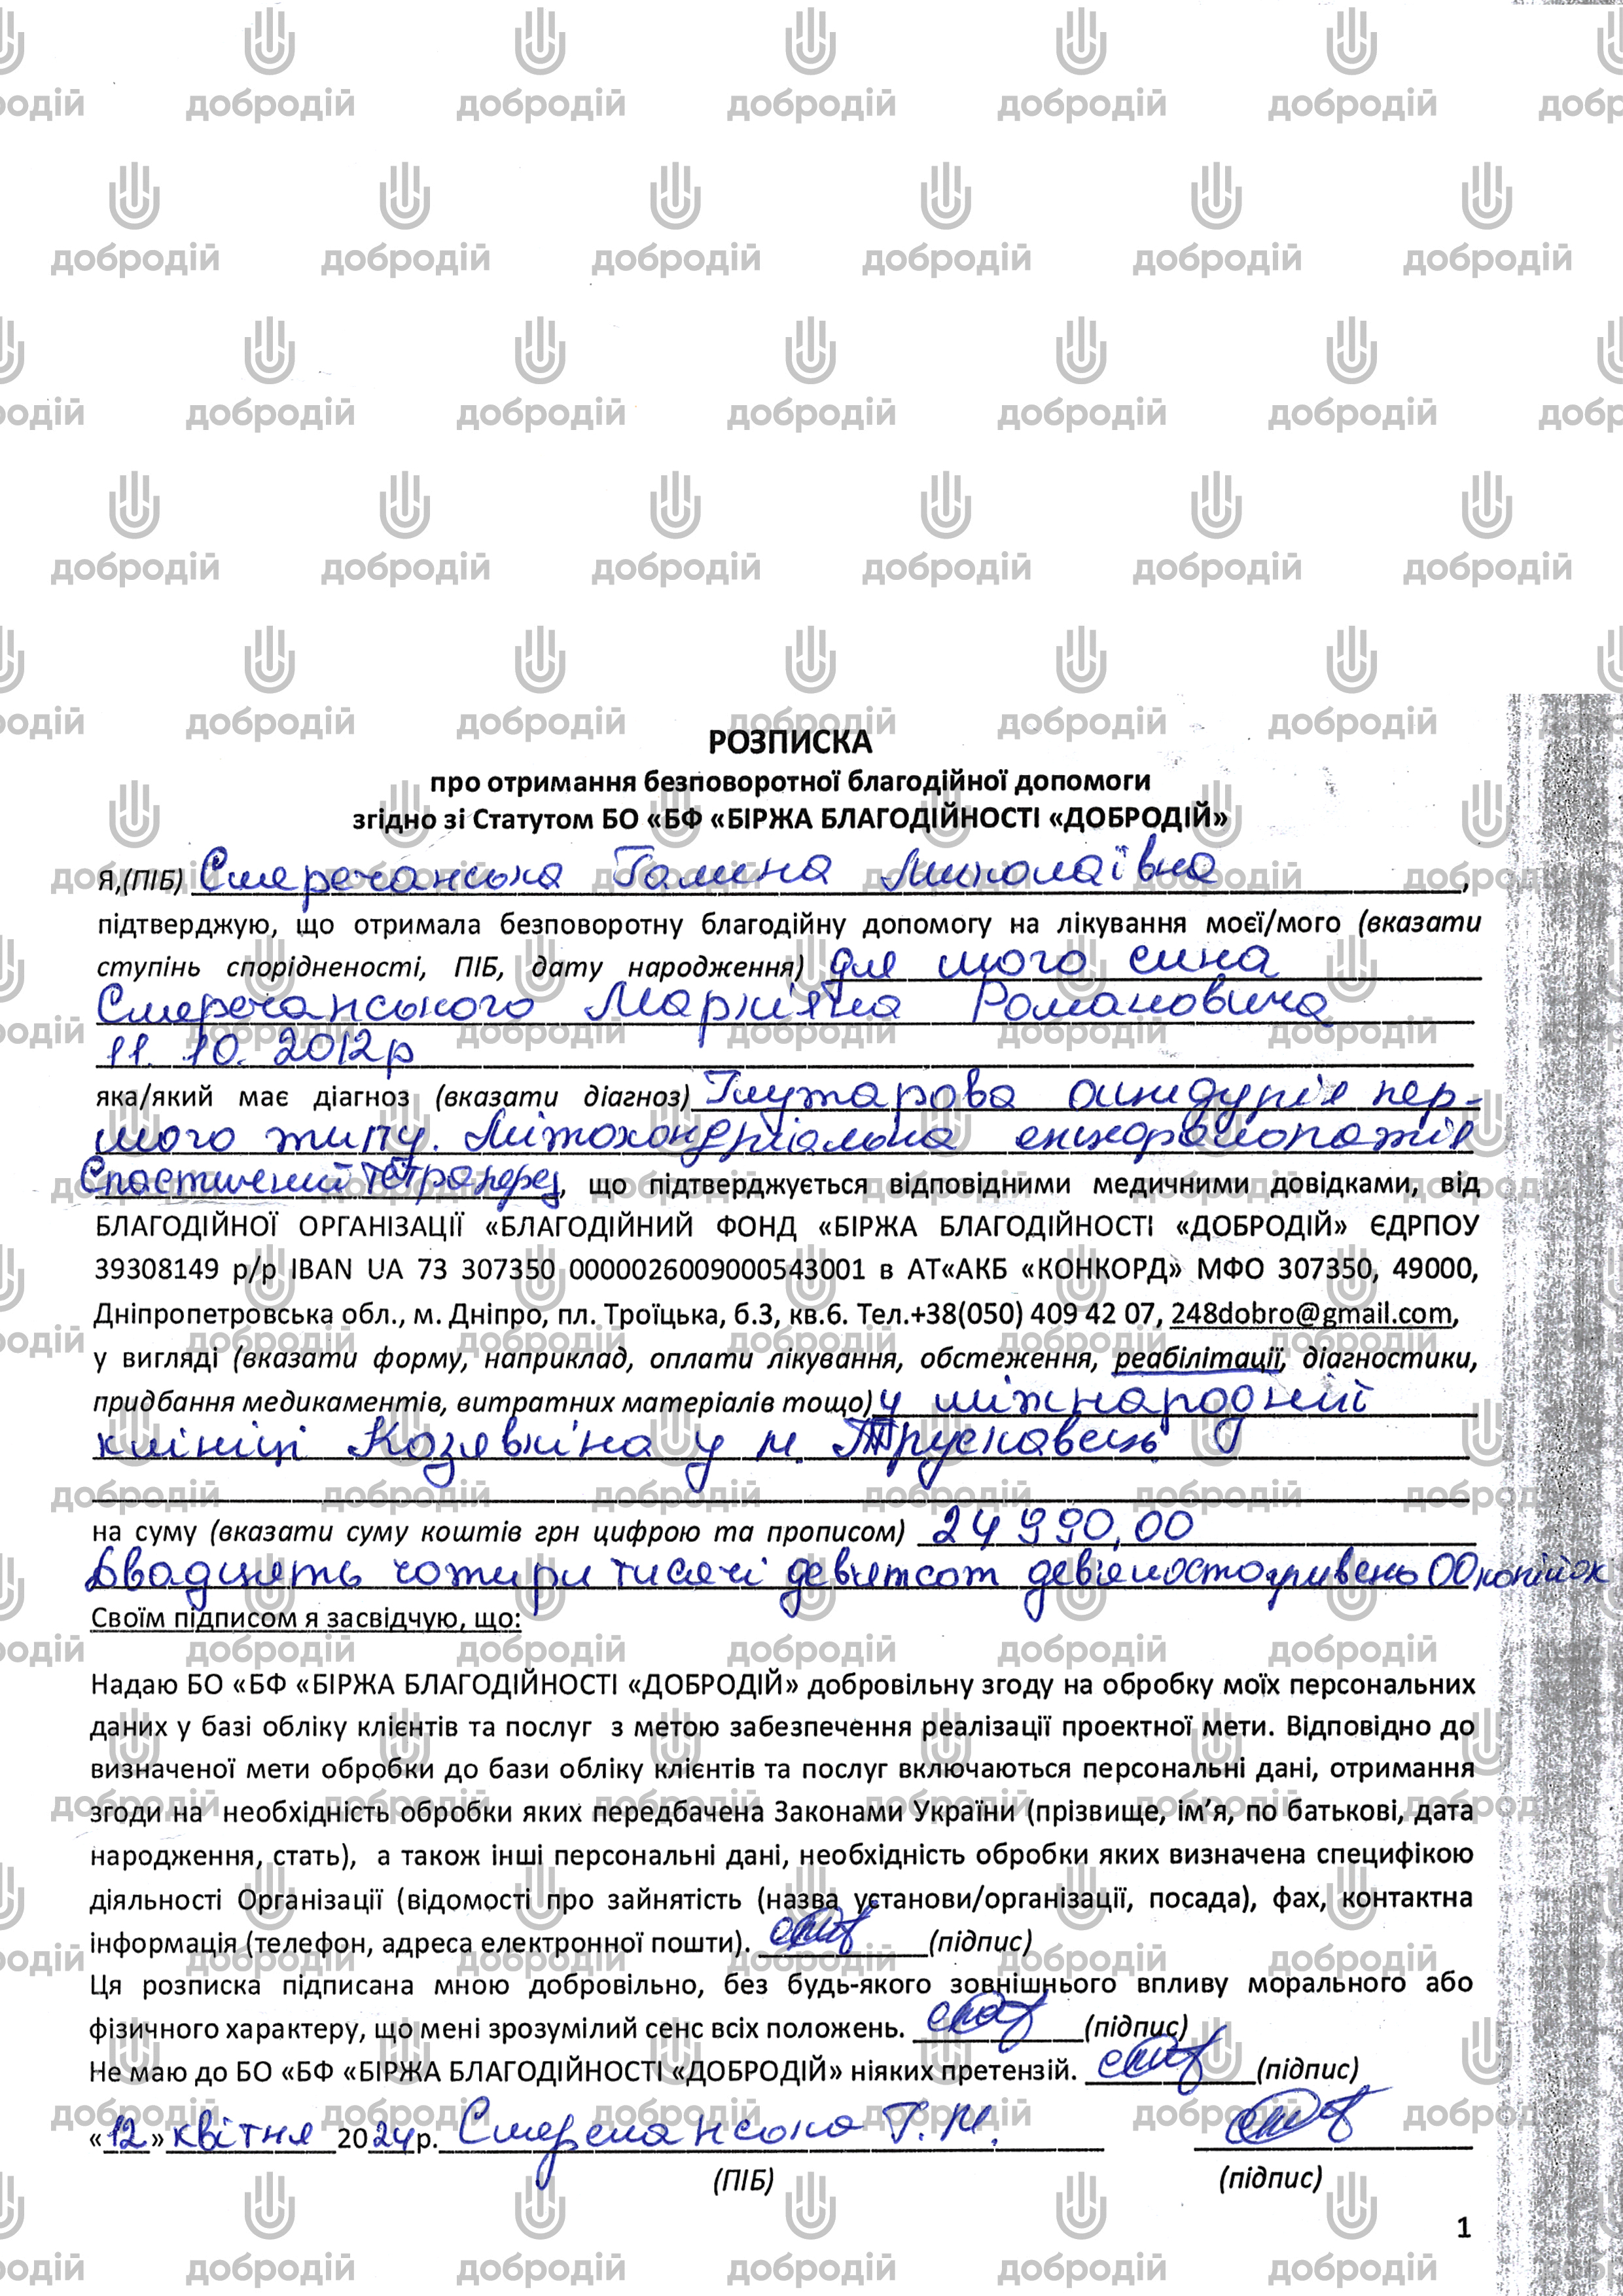 РОЗПИСКА
про отримання безповоротної благодійної допомоги
згідно зі Статутом БО «БФ «БІРЖА БЛАГОДІЙНОСТІ «ДОБРОДІЙ»
Я,(ПІБ) Смеречанська Галина Миколаївна,
підтверджую, що отримала безповоротну благодійну допомогу на лікування моєї/мого (вказати
ступінь спорідненості, ПІБ, дату народження) для мого сина
Смеречанського Марк'яна Романовича
11.10.2012р
яка/який має діагноз (вказати діагноз) Глутарова ацидурія пер-
шого типу. Мітохондріальна енцефалопатія
Спастичний тетрапарез, що підтверджується відповідними медичними довідками, від
БЛАГОДІЙНОЇ ОРГАНІЗАЦІЇ «БЛАГОДІЙНИЙ ФОНД «БІРЖА БЛАГОДІЙНОСТІ «ДОБРОДІЙ» ЄДРПОУ
39308149 р/р IBAN UA 73 307350 0000026009000543001 в АТ«АКБ «КОНКОРД» МФО 307350, 49000,
Дніпропетровська обл., м. Дніпро, пл. Троїцька, б.3, кв.6. Тел.+38(050) 409 42 07, 248dobro@gmail.com,
у вигляді (вказати форму, наприклад, оплати лікування, обстеження, реабілітації, діагностики,
придбання медикаментів, витратних матеріалів тощо) у міжнародній
клініці Козявкіна у м. Трускавець
на суму (вказати суму коштів грн цифрою та прописом) 24 990,00
Двадцять чотири тисячі девятсот девяносто гривень 00 копійок
Своїм підписом я засвідчую, що:
Надаю БО «БФ «БІРЖА БЛАГОДІЙНОСТІ «ДОБРОДІЙ» добровільну згоду на обробку моїх персональних
даних у базі обліку клієнтів та послуг з метою забезпечення реалізації проектної мети. Відповідно до
визначеної мети обробки до бази обліку клієнтів та послуг включаються персональні дані, отримання
згоди на необхідність обробки яких передбачена Законами України (прізвище, ім’я, по батькові, дата
народження, стать), а також інші персональні дані, необхідність обробки яких визначена специфікою
діяльності Організації (відомості про зайнятість (назва установи/організації, посада), фах, контактна
інформація (телефон, адреса електронної пошти). (підпис)
Ця розписка підписана мною добровільно, без будь-якого зовнішнього впливу морального або
фізичного характеру, що мені зрозумілий сенс всіх положень. (підпис)
Не маю до БО «БФ «БІРЖА БЛАГОДІЙНОСТІ «ДОБРОДІЙ» ніяких претензій. (підпис)
«12» квітня 2024р. Смеречанська Г.М.
(ПІБ) (підпис)
1
добродій